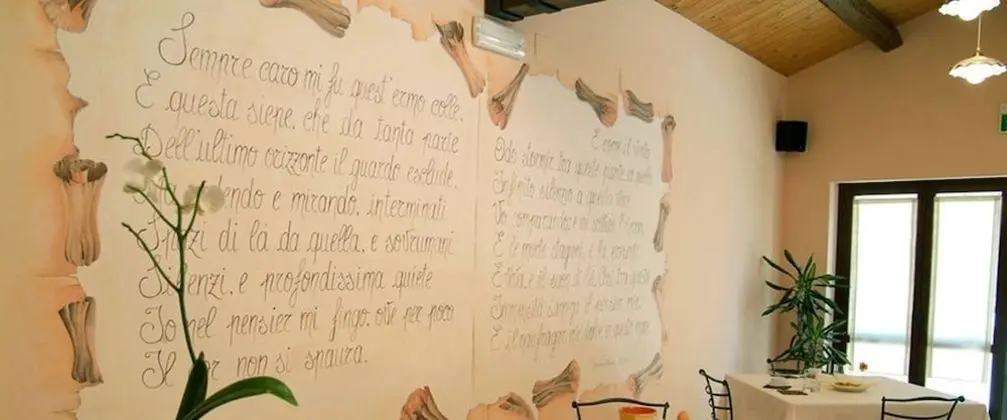 Sempre caro mi fu quest'ermo colle,
E questa siepe, che da tanta parte
Dell'ultimo orizzonte il guardo esclude.
endo e mirando, interminati
Spazi di là da quella, e sovrumani
Silenzi, e profondissima quiete
Io nel pensier mi fingo; ove per poco
Il cor non si spaura.
E come il vento
Odo stormir tra queste piante, io quello
Infinito silenzio a questa voce
Vo comparando: e mi sovvien l'eterno,
E le morte stagioni, e la presente
E viva, e il suon di lei. Così tra questa
Immensità s'annega il pensier mio:
E il naufragar m'è dolce in questo mare.